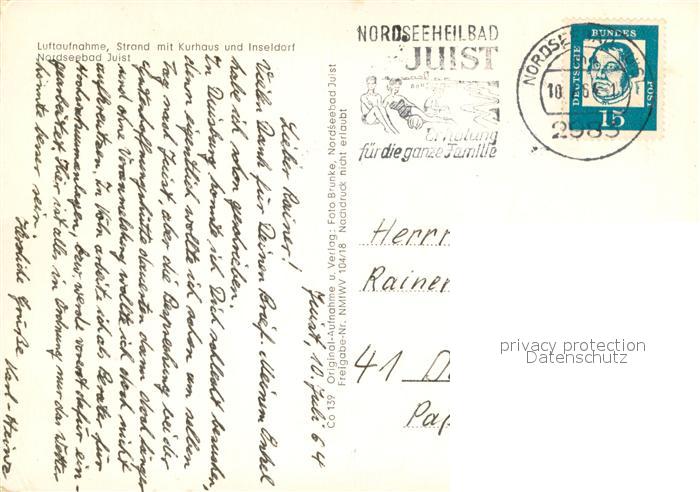 Luftaufnahme, Strand mit Kurhaus und Inseldorf
Nordseebad Juist
Juist, 10. Juli 64
Lieber Rainer!
Vielen Dank für Deinen Brief. Meinem Enkel
habe ich schon geschrieben.
In Duisburg konnte ich Dich schlecht besuchen,
denn eigentlich wollte ich schon am selben
Tag nach Juist, aber die Besprechung bei der
dauerten dann doch länger
und ohne Voranmeldung wollte ich doch nicht
aufkreuzen. In Köln arbeite ich als Berater für
bzw. werde vorerst dafür ein-
gearbeitet. Hier ist alles in Ordnung, nur das Wetter
könnte besser sein.
Herzliche Grüße Karl-Heinz
Co 139 Original-Aufnahme u. Verlag: Foto Brunke, Nordseebad Juist
Freigabe-Nr. NMfWV 104/18 Nachdruck nicht erlaubt
NORDSEEHEILBAD
JUIST
Erholung
für die ganze Familie
NORDSE
10.
2983
DEUTSCHE
BUNDES
POST
15
Herrn
Rainer
41 D
Pap
privacy protection
Datenschutz